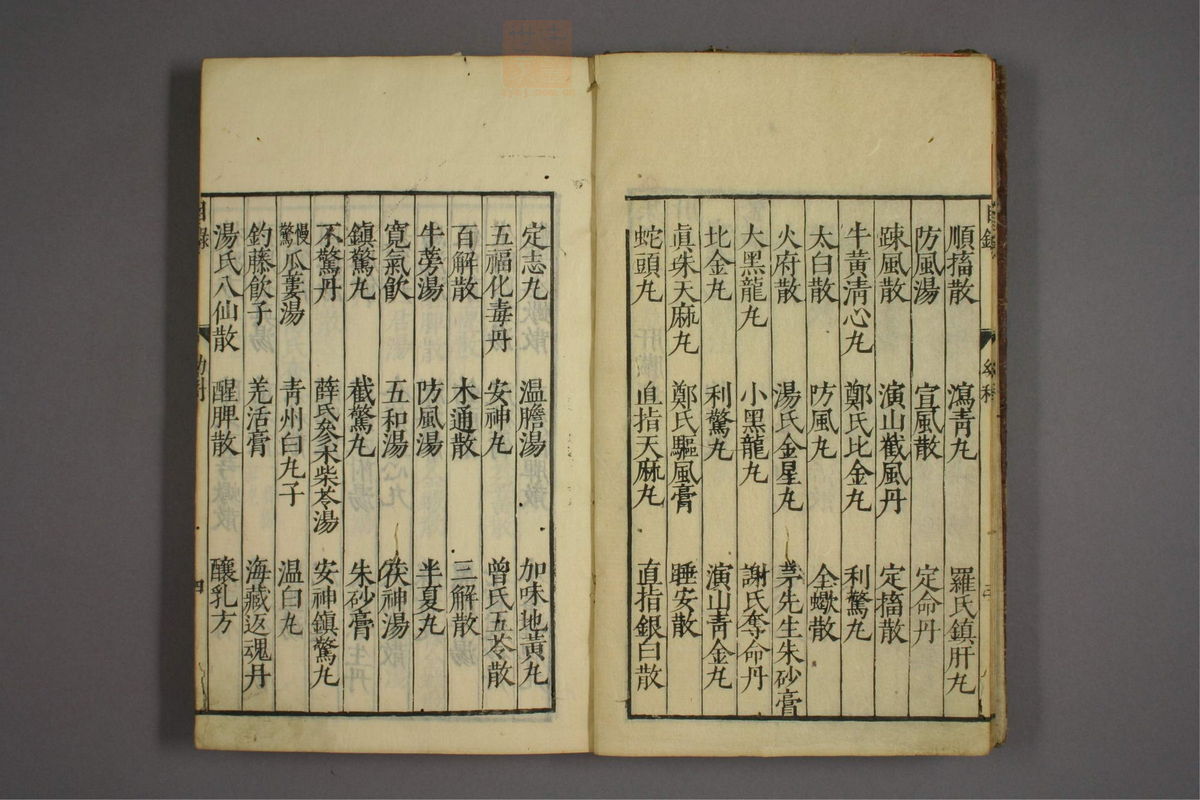 順搐散 瀉青丸 羅氏鎮肝丸
防風湯 宣風散 定命丹
踈風散 演山截風丹 定搐散
牛黃清心丸 鄭氏比金丸 利驚丸
太白散 防風丸 全蠍散
火府散 湯氏金星丸 茅先生朱砂膏
大黑龍丸 小黑龍丸 謝氏奪命丹
比金丸 利驚丸 演山青金丸
眞珠天麻丸 鄭氏驅風膏 睡安散
蛇頭丸 直指天麻丸 直指銀白散
幼科
三
定志丸 温膽湯 加味地黃丸
五福化毒丹 安神丸 曾氏五苓散
百解散 木通散 三解散
牛蒡湯 防風湯 半夏丸
寬氣飲 五和湯 茯神湯
鎮驚丸 截驚丸 朱砂膏
不驚丹 薛氏參术柴苓湯 安神鎮驚丸
慢驚瓜蔞湯 青州白丸子 温白丸
釣藤飲子 羌活膏 海藏返魂丹
湯氏八仙散 醒脾散 醸乳方
目錄 幼科 四